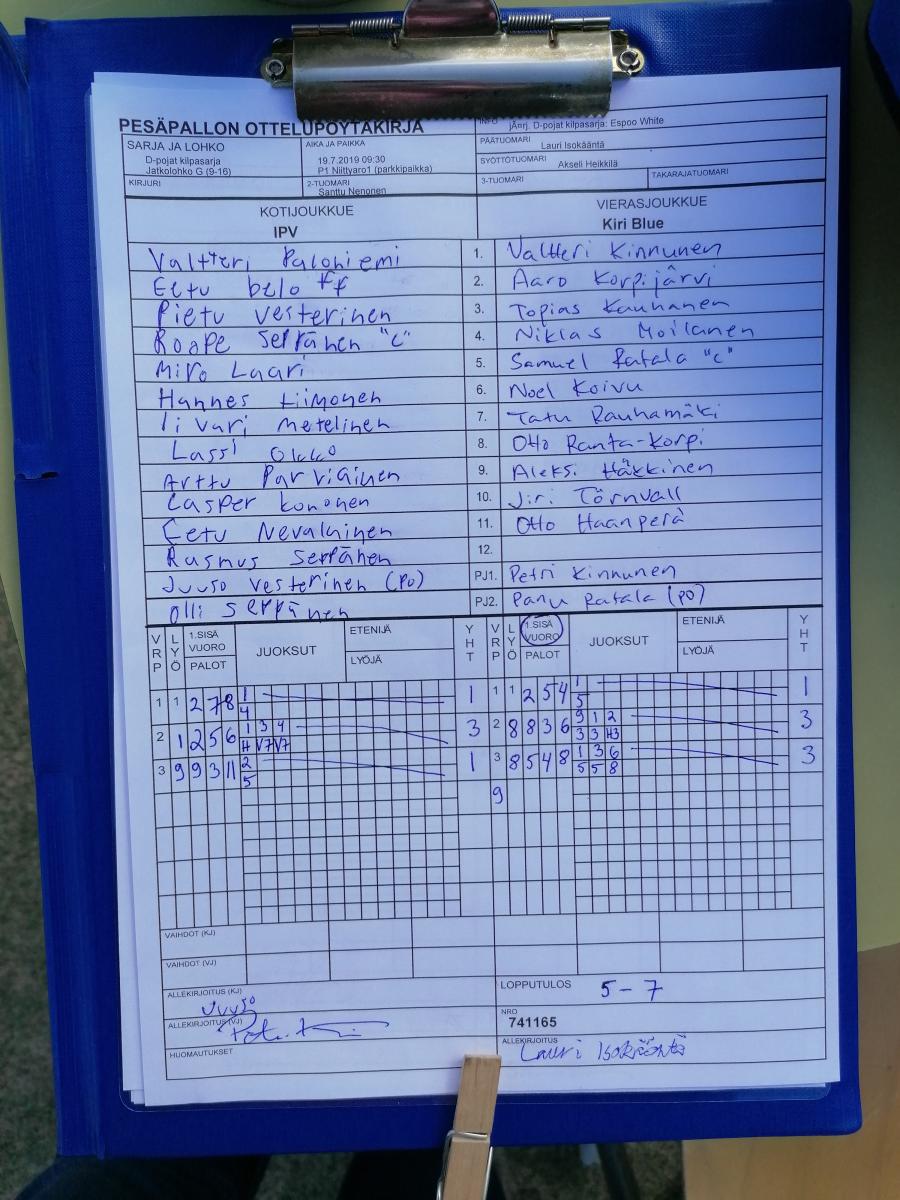 PESÄPALLON OTTELUPÖYTÄKIRJA
SARJA JA LOHKO
D-pojat kilpasarja
Jatkolohko G (9-16)
AIKA JA PAIKKA
19.7.2019 09:30
P1 Niittyaro1 (parkkipaikka)
INFO
jÃ¤rj. D-pojat kilpasarja: Espoo White
PÄÄTUOMARI Lauri Isokääntä
SYÖTTÖTUOMARI Akseli Heikkilä
KIRJURI
2-TUOMARI
Santtu Nenonen
3-TUOMARI
TAKARAJATUOMARI
KOTIJOUKKUE
IPV
VIERASJOUKKUE
Kiri Blue
Valtteri Paloniemi 1. Valtteri Kinnunen
Eetu beloff 2. Aaro Korpijärvi
Pietu Vesterinen 3. Topias Kauhanen
Roope Seppänen "c" 4. Niklas Moilanen
Miro Laari 5. Samuel Ratala "c"
Hannes Liimonen 6. Noel Koivu
Iivari Metelinen 7. Tatu Rauhamäki
Lassi Okko 8. Otto Ranta-Korpi
Arttu Parviainen 9. Aleksi Häkkinen
Casper Kononen 10. Jiri Törnvall
Eetu Nevalainen 11. Otto Haanperä
Rasmus Seppänen 12.
Juuso Vesterinen (PO) PJ1. Petri Kinnunen
Olli Seppänen PJ2. Panu Ratala (PO)
VRP LYÖ 1.SISÄ VUORO PALOT JUOKSUT ETENIJÄ LYÖJÄ YHT VRP LYÖ 1.SISÄ VUORO PALOT JUOKSUT ETENIJÄ LYÖJÄ YHT
1 1 2 7 8 1 1 1 1 2 5 4 1 1
4 5
2 1 2 5 6 1 3 4 3 2 8 8 3 6 9 1 2 3
H V7 V7 3 3 H3
3 9 9 3 11 2 1 3 8 5 4 8 1 3 6 3
5 5 5 8
9
VAIHDOT (KJ)
VAIHDOT (VJ)
ALLEKIRJOITUS (KJ)
Juuso
LOPPUTULOS 5-7
ALLEKIRJOITUS (VJ)
NRO
741165
HUOMAUTUKSET
ALLEKIRJOITUS
Lauri Isokääntä